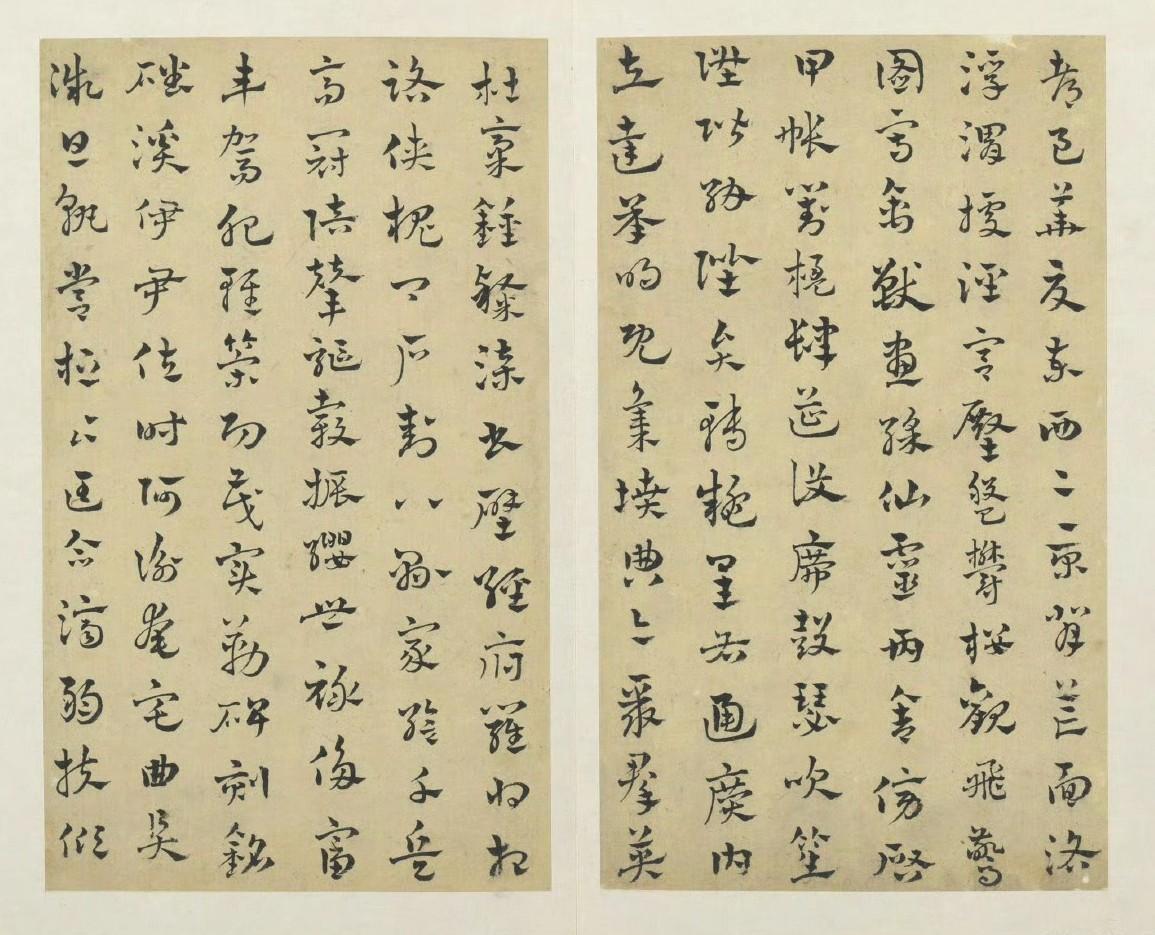 都邑華夏東西二京背芒面洛
浮渭據涇宮殿盤鬱樓觀飛驚
圖寫禽獸畫綵仙靈丙舍傍啓
甲帳對楹肆筵設席鼓瑟吹笙
陞階納陛弁轉疑星右通廣內
左達承明既集墳典亦聚群英
杜稾鍾隸漆書壁經府羅將相
路俠槐卿戶封八縣家給千兵
高冠陪輦驅轂振纓世祿侈富
車駕肥輕策功茂實勒碑刻銘
磻溪伊尹佐時阿衡奄宅曲阜
微旦孰營桓公匡合濟弱扶傾